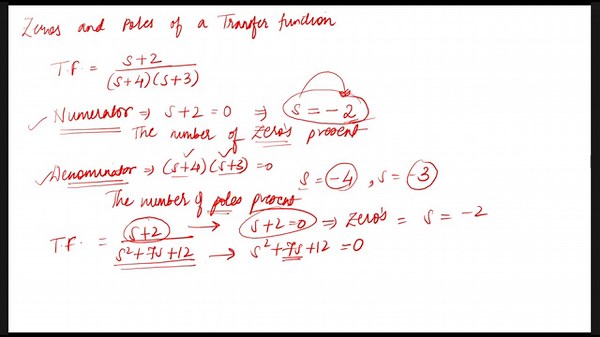 Zeros and Poles of a Transfer function
T.f = s+2 / (s+4)(s+3)
Numerator ⇒ s+2=0 ⇒ s=-2
The number of zero's present
Denominator ⇒ (s+4)(s+3)=0 s=-4, s=-3
The number of poles present
T.f. = s+2 / s²+7s+12 → s+2=0 ⇒ zero's = s=-2
→ s²+7s+12=0